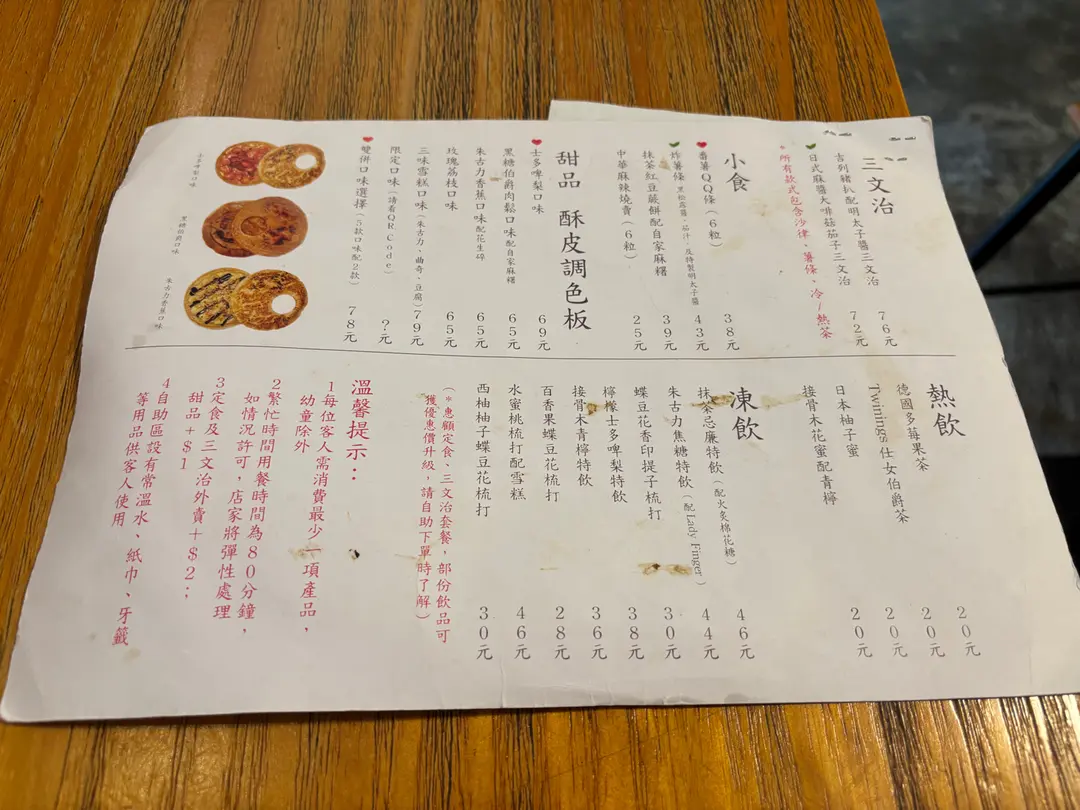 三文治
吉列豬扒配明太子醬三文治 76元
日式麻醬大啡菇茄子三文治 72元
*所有款式包含沙律、薯條、冷/熱茶
小食
番薯QQ條(6粒) 38元
炸薯條 黑松露醬、茄汁/及特製明太子醬 43元
抹茶紅豆餅配自家麻糬 39元
中華麻辣燒賣(6粒) 25元
甜品 酥皮調色板
士多啤梨口味 69元
黑糖伯爵肉鬆口味配自家麻糬 65元
朱古力香蕉口味配花生碎 65元
玫瑰荔枝口味 65元
三味雪糕口味(朱古力、曲奇、豆腐) 79元
限定口味(請看QR Code) ?元
雙併口味選擇(5款口味配2款) 78元
士多啤梨口味
黑糖伯爵口味
朱古力香蕉口味
熱飲
德國多莓果茶 20元
Twinings仕女伯爵茶 20元
日本柚子蜜 20元
接骨木花蜜配青檸 20元
凍飲
抹茶忌廉特飲(配火炙棉花糖) 46元
朱古力焦糖特飲(配Lady Finger) 44元
蝶豆花香印提子梳打 30元
檸檬士多啤梨特飲 38元
接骨木青檸特飲 36元
百香果蝶豆花梳打 28元
水蜜桃梳打配雪糕 46元
西柚柚子蝶豆花梳打 30元
(*惠顧定食、三文治套餐,部份飲品可
獲優惠價升級,請自助下單時了解)
溫馨提示:
1每位客人需消費最少一項產品,
幼童除外
2繁忙時間用餐時間為80分鐘,
如情況許可,店家將彈性處理
3定食及三文治外賣+$2;
甜品+$1
4自助區設有常溫水、紙巾、牙籤
等用品供客人使用